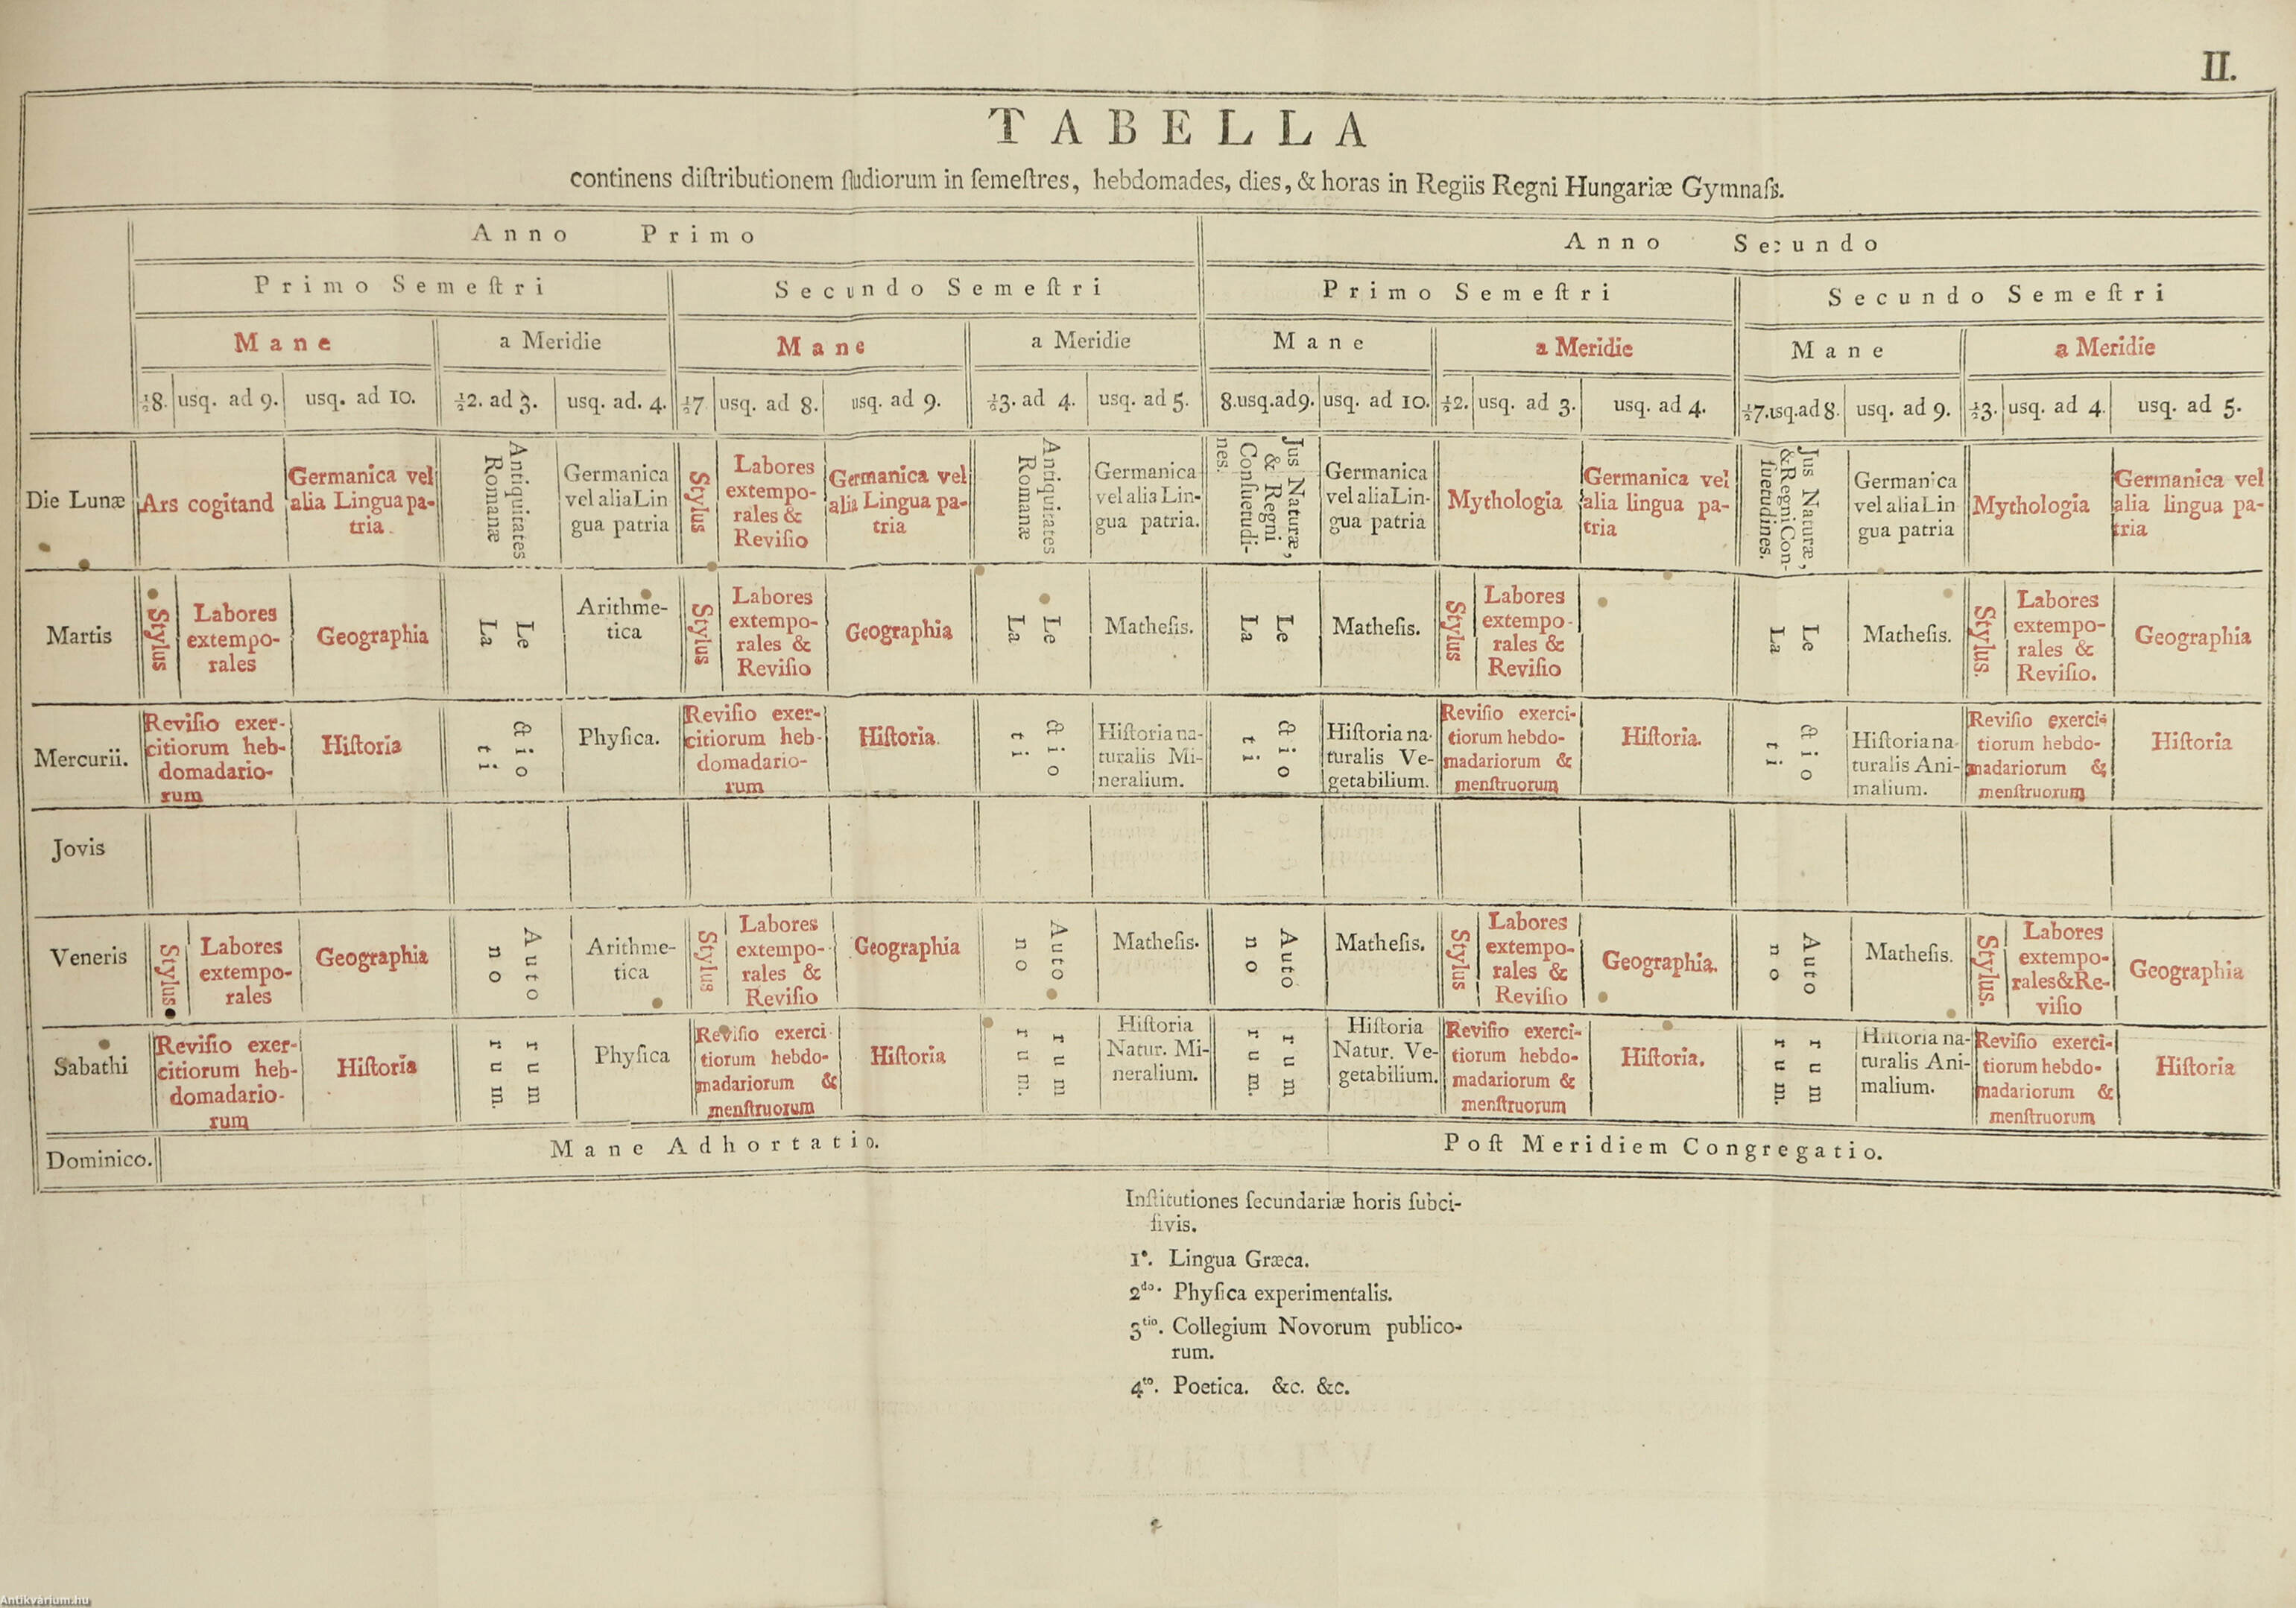 II.
TABELLA
continens diſtributionem ſtudiorum in ſemeſtres, hebdomades, dies, & horas in Regiis Regni Hungariæ Gymnaſs.
Anno Primo
Anno Secundo
Primo Semeſtri
Secundo Semeſtri
Primo Semeſtri
Secundo Semeſtri
Mane
a Meridie
Mane
a Meridie
Mane
a Meridie
Mane
a Meridie
½8.
usq. ad 9.
usq. ad 10.
½2. ad 3.
usq. ad. 4.
½7
usq. ad 8.
usq. ad 9.
½3. ad 4.
usq. ad 5.
8.usq.ad9.
usq. ad 10.
½2.
usq. ad 3.
usq. ad 4.
½7.usq.ad 8.
usq. ad 9.
½3.
usq. ad 4.
usq. ad 5.
Die Lunæ
Ars cogitand
Germanica vel
alia Lingua pa-
tria.
Antiquitates
Romanæ
Germanica
vel alia Lin
gua patria
Stylus
Labores
extempo-
rales &
Reviſio
Germanica vel
alia Lingua pa-
tria
Antiquitates
Romanæ
Germanica
vel alia Lin-
gua patria.
Jus Naturæ,
& Regni
Conſuetudi-
nes.
Germanica
vel alia Lin-
gua patria
Mythologia
Germanica vel
alia lingua pa-
tria
Jus Naturæ,
& Regni Con-
ſuetudines.
Germanica
vel alia Lin
gua patria
Mythologia
Germanica vel
alia lingua pa-
tria
Martis
Stylus
Labores
extempo-
rales
Geographia
Le
La
Arithme-
tica
Stylus
Labores
extempo-
rales &
Reviſio
Geographia
Le
La
Matheſis.
Le
La
Matheſis.
Stylus
Labores
extempo-
rales &
Reviſio
Le
La
Matheſis.
Stylus.
Labores
extempo-
rales &
Reviſio.
Geographia
Mercurii.
Reviſio exer-
citiorum heb-
domadario-
rum
Hiſtoria
&io
ti
Phyſica.
Reviſio exer-
citiorum heb-
domadario-
rum
Hiſtoria.
&io
ti
Hiſtoria na-
turalis Mi-
neralium.
&io
ti
Hiſtoria na-
turalis Ve-
getabilium.
Reviſio exerci-
tiorum hebdo-
madariorum &
menſtruorum
Hiſtoria.
&io
ti
Hiſtoria na-
turalis Ani-
malium.
Reviſio exerci-
tiorum hebdo-
madariorum &
menſtruorum
Hiſtoria
Jovis
Veneris
Stylus
Labores
extempo-
rales
Geographia
Auto
no
Arithme-
tica
Stylus
Labores
extempo-
rales &
Reviſio
Geographia
Auto
no
Matheſis.
Auto
no
Matheſis.
Stylus
Labores
extempo-
rales &
Reviſio
Geographia.
Auto
no
Matheſis.
Stylus.
Labores
extempo-
rales&Re-
viſio
Geographia
Sabathi
Reviſio exer-
citiorum heb-
domadario-
rum
Hiſtoria
rum
rum.
Phyſica
Reviſio exerci
tiorum hebdo-
madariorum &
menſtruorum
Hiſtoria
rum
rum.
Hiſtoria
Natur. Mi-
neralium.
rum
rum.
Hiſtoria
Natur. Ve-
getabilium.
Reviſio exerci-
tiorum hebdo-
madariorum &
menſtruorum
Hiſtoria.
rum
rum.
Hiſtoria na-
turalis Ani-
malium.
Reviſio exerci-
tiorum hebdo-
madariorum &
menſtruorum
Hiſtoria
Dominico.
Mane Adhortatio.
Poſt Meridiem Congregatio.
Inſtitutiones ſecundariæ horis ſubci-
ſivis.
1°. Lingua Græca.
2do. Phyſica experimentalis.
3tio. Collegium Novorum publico-
rum.
4to. Poetica. &c. &c.
Antikvárium.hu